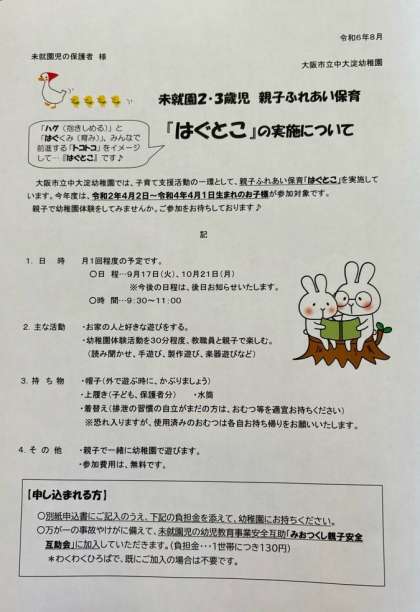 令和6年8月
未就園児の保護者 様
大阪市立中大淀幼稚園
未就園2・3歳児 親子ふれあい保育
『はぐとこ』の実施について
「ハグ（抱きしめる）」と
「はぐくみ（育み）」、みんなで
前進する「トコトコ」をイメージ
して…『はぐとこ』です♪
大阪市立中大淀幼稚園では、子育て支援活動の一環として、親子ふれあい保育「はぐとこ」を実施して
います。今年度は、令和2年4月2日～令和4年4月1日生まれのお子様が参加対象です。
親子で幼稚園体験をしてみませんか。ご参加をお待ちしております♪
記
1. 日 時 月1回程度の予定です。
〇日 程…9月17日（火）、10月21日（月）
※今後の日程は、後日お知らせいたします。
〇時 間…9:30～11:00
2. 主な活動 ・お家の人と好きな遊びをする。
・幼稚園体験活動を30分程度、教職員と親子で楽しむ。
（読み聞かせ、手遊び、製作遊び、楽器遊びなど）
3. 持 ち 物 ・帽子（外で遊ぶ時に、かぶりましょう）
・上履き（子ども、保護者分） ・水筒
・着替え（排泄の習慣の自立がまだの方は、おむつ等を適宜お持ちください）
※恐れ入りますが、使用済みのおむつは各自お持ち帰りをお願いいたします。
4. そ の 他 ・親子で一緒に幼稚園で遊びます。
・参加費用は、無料です。
【申し込まれる方】
〇別紙申込書にご記入のうえ、下記の負担金を添えて、幼稚園にお持ちください。
〇万が一の事故やけがに備えて、未就園児の幼児教育事業安全互助「みおつくし親子安全
互助会」に加入していただきます。（負担金・・・1世帯につき130円）
＊わくわくひろばで、既にご加入の場合は不要です。